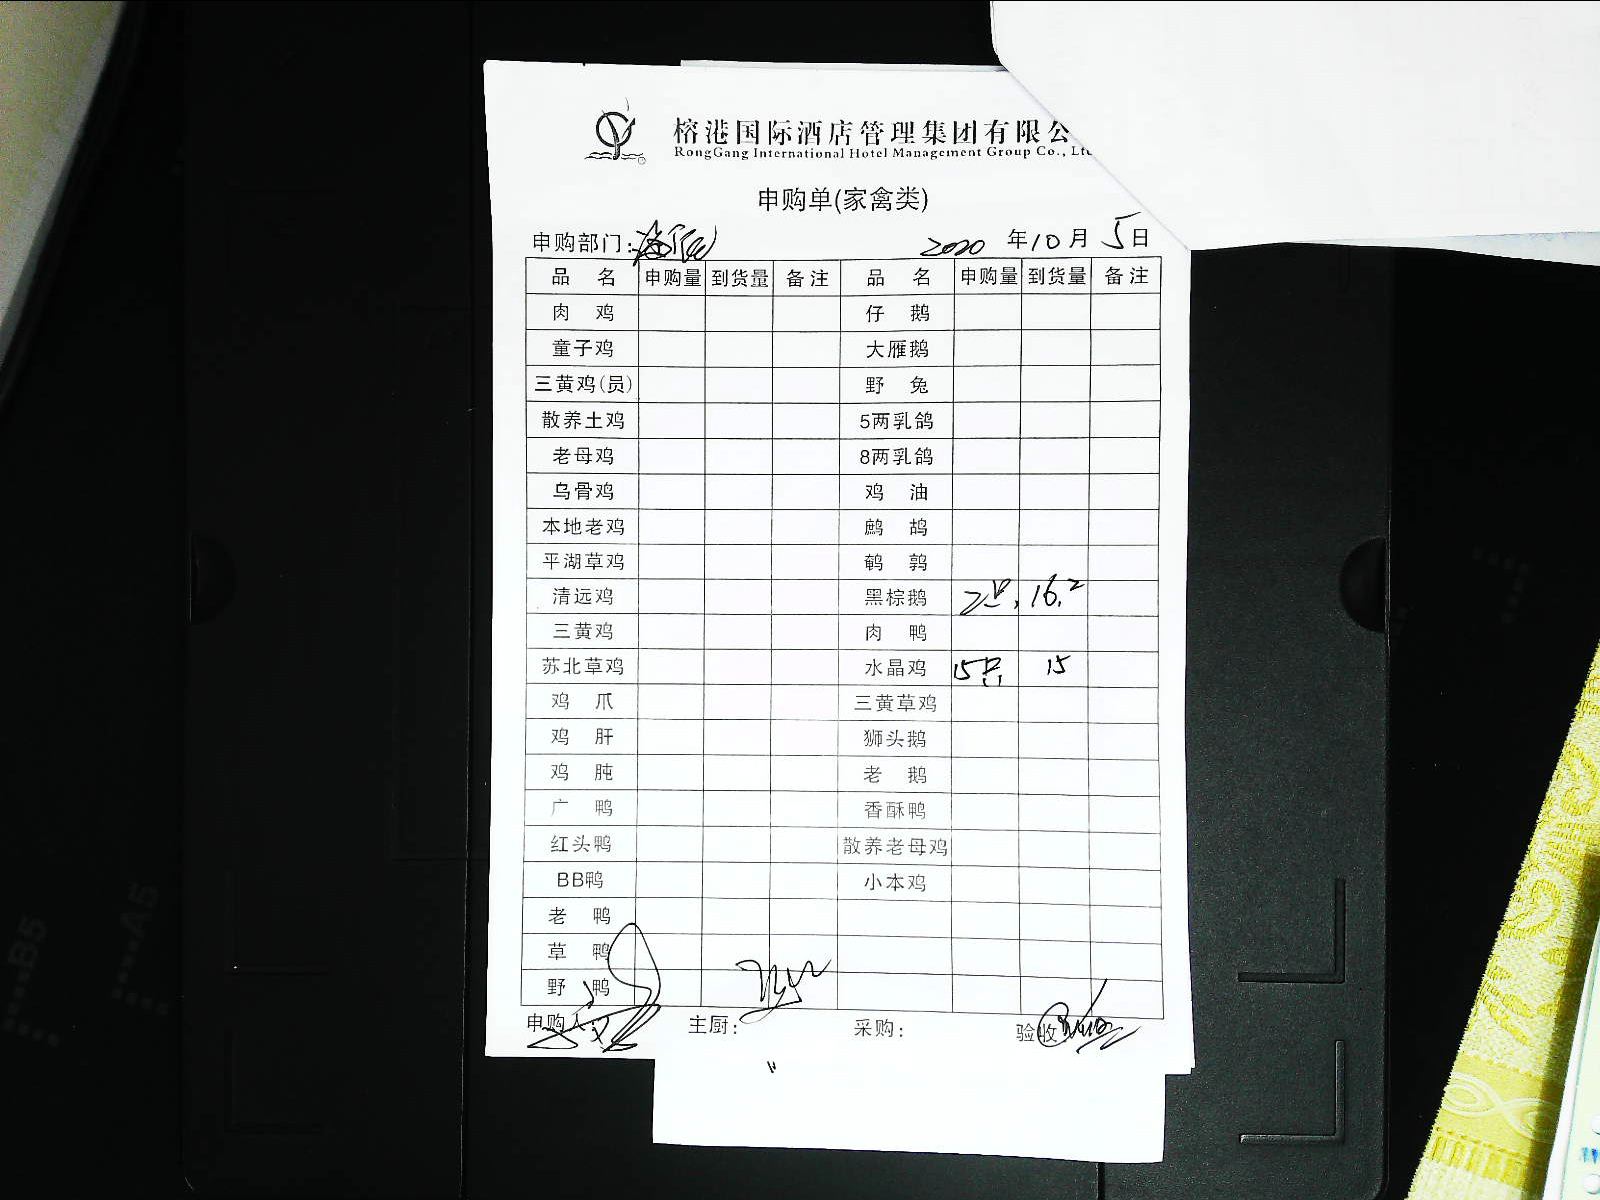 榕港国际酒店管理集团有限公
RongGang International Hotel Management Group Co., Lt
申购单(家禽类)
申购部门: 2020 年10月5日
品 名 申购量 到货量 备注 品 名 申购量 到货量 备注
肉 鸡 仔 鹅
童子鸡 大雁鹅
三黄鸡(员) 野 兔
散养土鸡 5两乳鸽
老母鸡 8两乳鸽
乌骨鸡 鸡 油
本地老鸡 鹧 鸪
平湖草鸡 鹌 鹑
清远鸡 黑棕鹅 2只. 16.2
三黄鸡 肉 鸭
苏北草鸡 水晶鸡 15只 15
鸡 爪 三黄草鸡
鸡 肝 狮头鹅
鸡 肫 老 鹅
广 鸭 香酥鸭
红头鸭 散养老母鸡
BB鸭 小本鸡
老 鸭
草 鸭
野 鸭
申购人 主厨: 采购: 验收
B5
A5